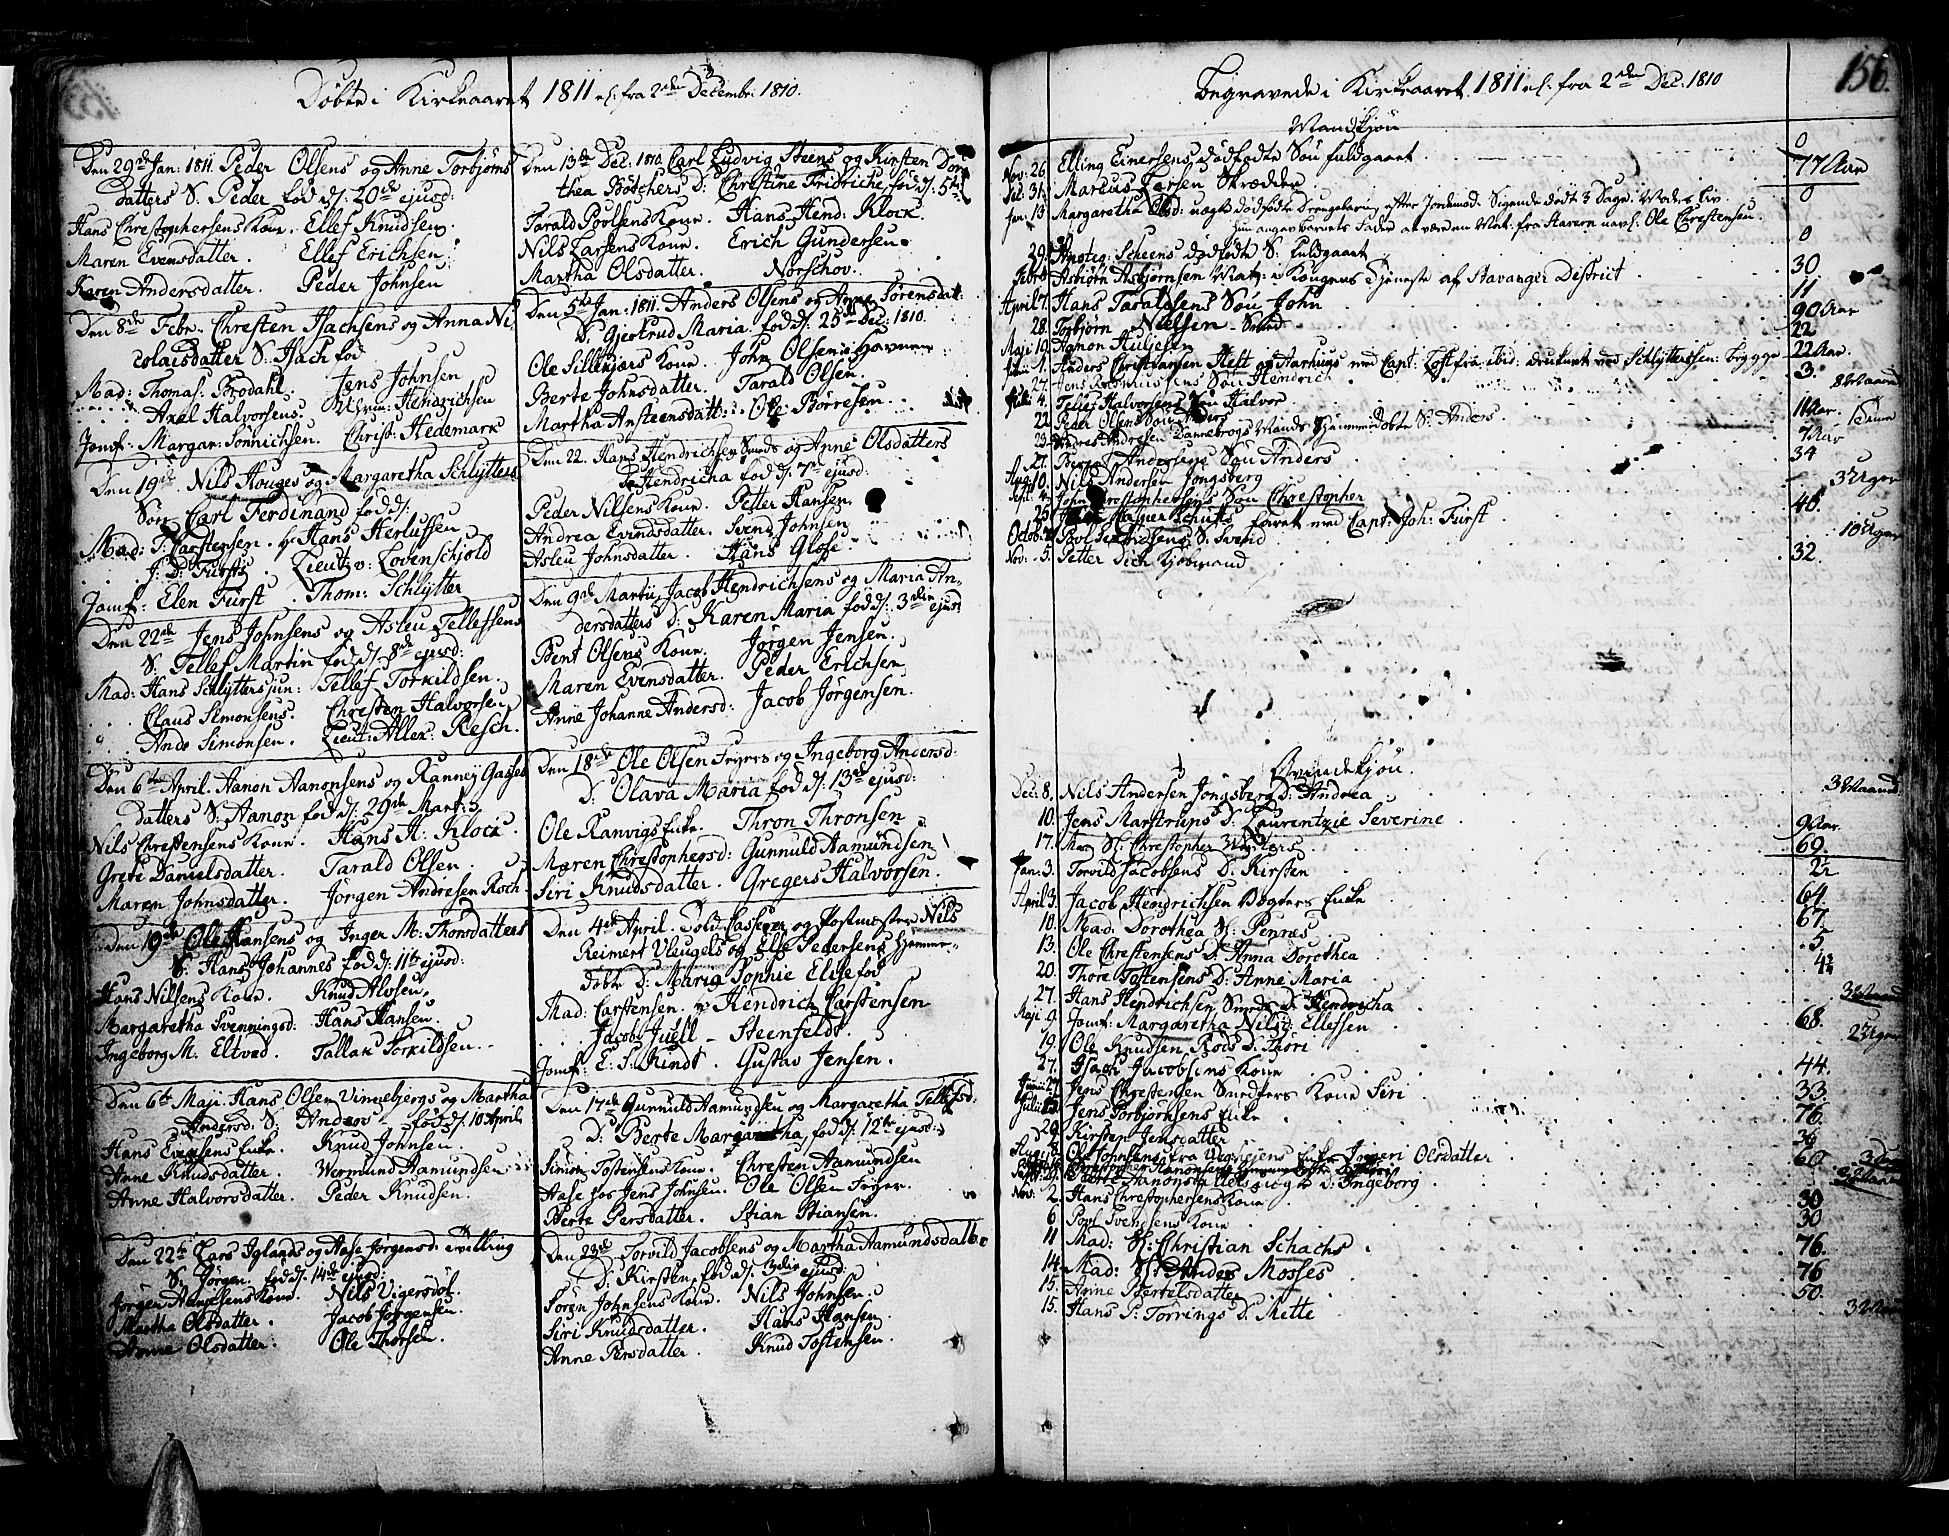 Døbte i Kirkeaaret 1811 els: fra 2den Decembr: 1810.
Den 29de Jan: 1811 Peder Olsens og Anne Torbjørns
datters S. Peder fød d/: 20de ejusd:
Hans Christophersens Kone. Ellef Knudsen.
Maren Evensdatter. Ellef Erichsen.
Karen Andersdatter. Peder Johnsen
Den 8de Febr. Chresten Isachsens og Anna Ni
colaisdatter S: Isach fød
Mad: Thomas: Brodahl. Jens Johnsen
Axel Halvorsens. Hendrichsen
Jomf: Margar: Tønnichsen. Christ: Hedemark
Den 19de Nils Houges og Margaretha Schlytters
Søn Carl Ferdinand fød d/:
Mad: T: Carstensen. Hans Herlufsen
J: D: Fürsts. Lieut: v: Lovenschjold
Jomf: Elen Fürst. Thom: Schlytter
Den 22de Jens Johnsens og Asleu Tellefsens
S. Tellef Martin fød d/: 8de ejusd:
Mad: Hans Schlytters jun: Tellef Torkildsen.
Claus Simonsens. Chresten Halvorsen
Ande Simonsen. Lieut: Allex: Resch.
Den 6te April. Aanon Aanonsens og Ranney Gasses
datters S: Aanon fød d/: 29de Mart:
Nils Chrestensens Kone. Hans A: Klock.
Grete Danielsdatter. Tarald Olsen.
Maren Johnsdatter. Jørgen Andresen Koch
Den 19de Ole Hansens og Inger M: Thorsdatters
S. Hans Johannes fød d/: 11te ejusd:
Hans Nilsens Kone. Knud Alvsen.
Margaretha Svenningsd: Hans Hansen.
Ingeborg M. Eltved. Tallak Torkildsen.
Den 6te Maji Hans Olsen Vinnebjergs og Martha
Andersd: S: Andreas fød d/: 10 April
Hans Evensens Enke. Knud Johnsen.
Anne Knudsdatter. Wermund Aamundsen
Anne Halvorsdatter. Peder Knudsen.
Den 22de Lars Iglands og Aase Jørgensd: Tvilling
S. Jørgen fød d/: 14de ejusd:
Jørgen Aanensens Kone. Nils Vigersdøl.
Martha Olsdatter. Jacob Jørgensen.
Anne Olsdatter. Ole Thorsen.
Den 13de Dec: 1810. Carl Ludvig Steens og Kirsten Doro
thea Bötchers D: Christine Fridriche, fød d/: 5te
Tarald Povlsens Kone. Hans Hend: Klock.
Nils Larsens Kone. Erich Gundersen.
Martha Olsdatter. Norschov.
Den 5te Jan: 1811. Anders Olsens og Anne Sørensdat:
D. Gjertrud Maria fød d/: 25de Dec: 1810.
Ole Sillebjørs Kone. John Olsen i Havnen
Berte Johnsdatter. Tarald Olsen.
Martha Ansteensdatt: Ole Børresen.
Den 22. Hans Hendrichsen Smeds og Anne Olsdatters
D. Hendricha fød d/: 7de ejusd:
Peder Nilsens Kone. Petter Hansen.
Andrea Evindsdatter. Svend Johnsen
Asleu Johnsdatter. Hans Glose.
Den 9de Martii, Jacob Hendrichsens og Maria An-
dersdatters D: Karen Maria fød d/: 3die ejusd
Bent Olsens Kone. Jørgen Jensen.
Maren Evensdatter. Peder Erichsen
Anne Johanne Andersd: Jacob Jørgensen.
Den 18de Ole Olsen Fryres og Ingeborg Andersd:
D: Olava Maria fød d/: 13de ejusd:
Ole Ranvigs Enke. Thron Thronsen
Maren Christophersd: Gunnuld Aamundsen
Siri Knudsdatter. Gregers Halvorsen.
Den 4de April. Told Casserer og Postmester Nils
Reimert Vleugels og Else Pedersens Hjemme-
døbte D: Maria Sophie Elise fød
Mad: Carstensen. Hendrich Carstensen
Jacob Juell - Steenfeldt.
Jomf: E: S: Kindt. Gustav Jensen.
Den 17de Gunnuld Aamundsen og Margaretha Tellefsd:
D: Berte Margaretha, fød d/: 12te ejusd:
Simon Tostensens Kone. Chresten Aamundsen
Aase hos Jens Johnsen. Ole Olsen Fryer.
Berte Persdatter. Stian Stiansen.
Den 23de Torvild Jacobsens og Martha Aamundsdatter
D: Kirsten, fød d/: 3die ejusd:
Sørgn Johnsens Kone. Nils Johnsen.
Siri Knudsdatter. Hans Hansen
Anne Persdatter. Knud Tostensen.
Begravede i Kirkeaaret 1811 els: fra 2den Dec: 1810
156.
Mandkjøn
Nov: 26. Elling Einersens dødfødte Søn fuldgaaet. 0
Dec: 31. Marcus Larsen Skrædder. 77 Aar
Jan: 13 Margaretha Olsd: uægte dødfødte Drengebarn, efter Jordemod: Sigende dødt 3 Dage i Moders Liv. 0
Hun angav Barnets Fader at være en Mat: fra Havern navnl: Ole Chrestensen.
29. Apoteg: Scheens dødfødte S: Fuldgaaet 0
Febr: Asbjørn Asbjørnsen Mat: i Kongens Tjeneste af Stavanger District. 30
April 7. Hans Taraldsens Søn John 11
28. Torbjørn Nielsen Smed 90 Aar
Maji 19. Aanon Huljesen 22
Junii 1. Anders Christiansen Heft af Aarhuus med Capt: Toft fra ibid: druknet ved Schlyttersen: brygge 22 Aar.
27. Jens Søn Hendrich 3.
Juli: 4. Tellef Halvorsens Søn Halvor 8 Maaned
22. Peder Olsens Søn Anders 11 Aar.
23. Andres Andresen Dannebrogs Mands hjemmedøbte S: Anders
27. Andersens Søn Anders 7 Aar
Aug: 10. Nils Andersen Jongsberg 34
Sept. 4. John Chrestophersens Søn Chrestopher 3 Uger
25. Casper Schütts faret med Capt: Joh: Fürst 40.
Octob: S. Svend 10 Uger
Nov: 5. Petter Dich Kjøbmand 32.
Qvindekjøn.
Dec: 8. Nils Andersen Jongsberg D: Andrea 3 Maaned
10. Jens Marstrups D: Laurentzie Severine 9 Aar.
17. Mad: Sl: Christopher 69.
Jan: 3. Torvild Jacobsens D: Kirsten
April 3. Jacob Hendrichsen Vogters Enke 64.
10. Mad: Dorothea Sl: Penræs 67.
13. Ole Chrestensens D: Anna Dorothea 5
20. Thore Tostensens D: Anne Maria
27. Hans Hendrichsen Smeds D: Hendricha 3 Maaned
Maji 9. Jomf: Margaretha Nilsd: Ellefsen 68.
19. Ole Knudsen Røds D: Thori 2 Uger
27. Isach Jacobsens Kone 44.
Junii 27. Jens Chrestensen Snedkers Kone Siri 33.
Julii Jens Torbjørnsens Enke 76.
20. Kirsten Jensdatter 36
Ole Johnsens fra Enke Ingeri Olsdatter 60
D: Ingeborg
Nov: 2. Hans Christophersens Kone 30
6. Povl Svendsens Kone 30
11 Mad: Sl: Christian Schachs 76.
14. Mad: Sl: Anders Mosses 76
15. Anne Bertelsdatter 50.
15. Hans P: Torrings D: Mette 3 Maan